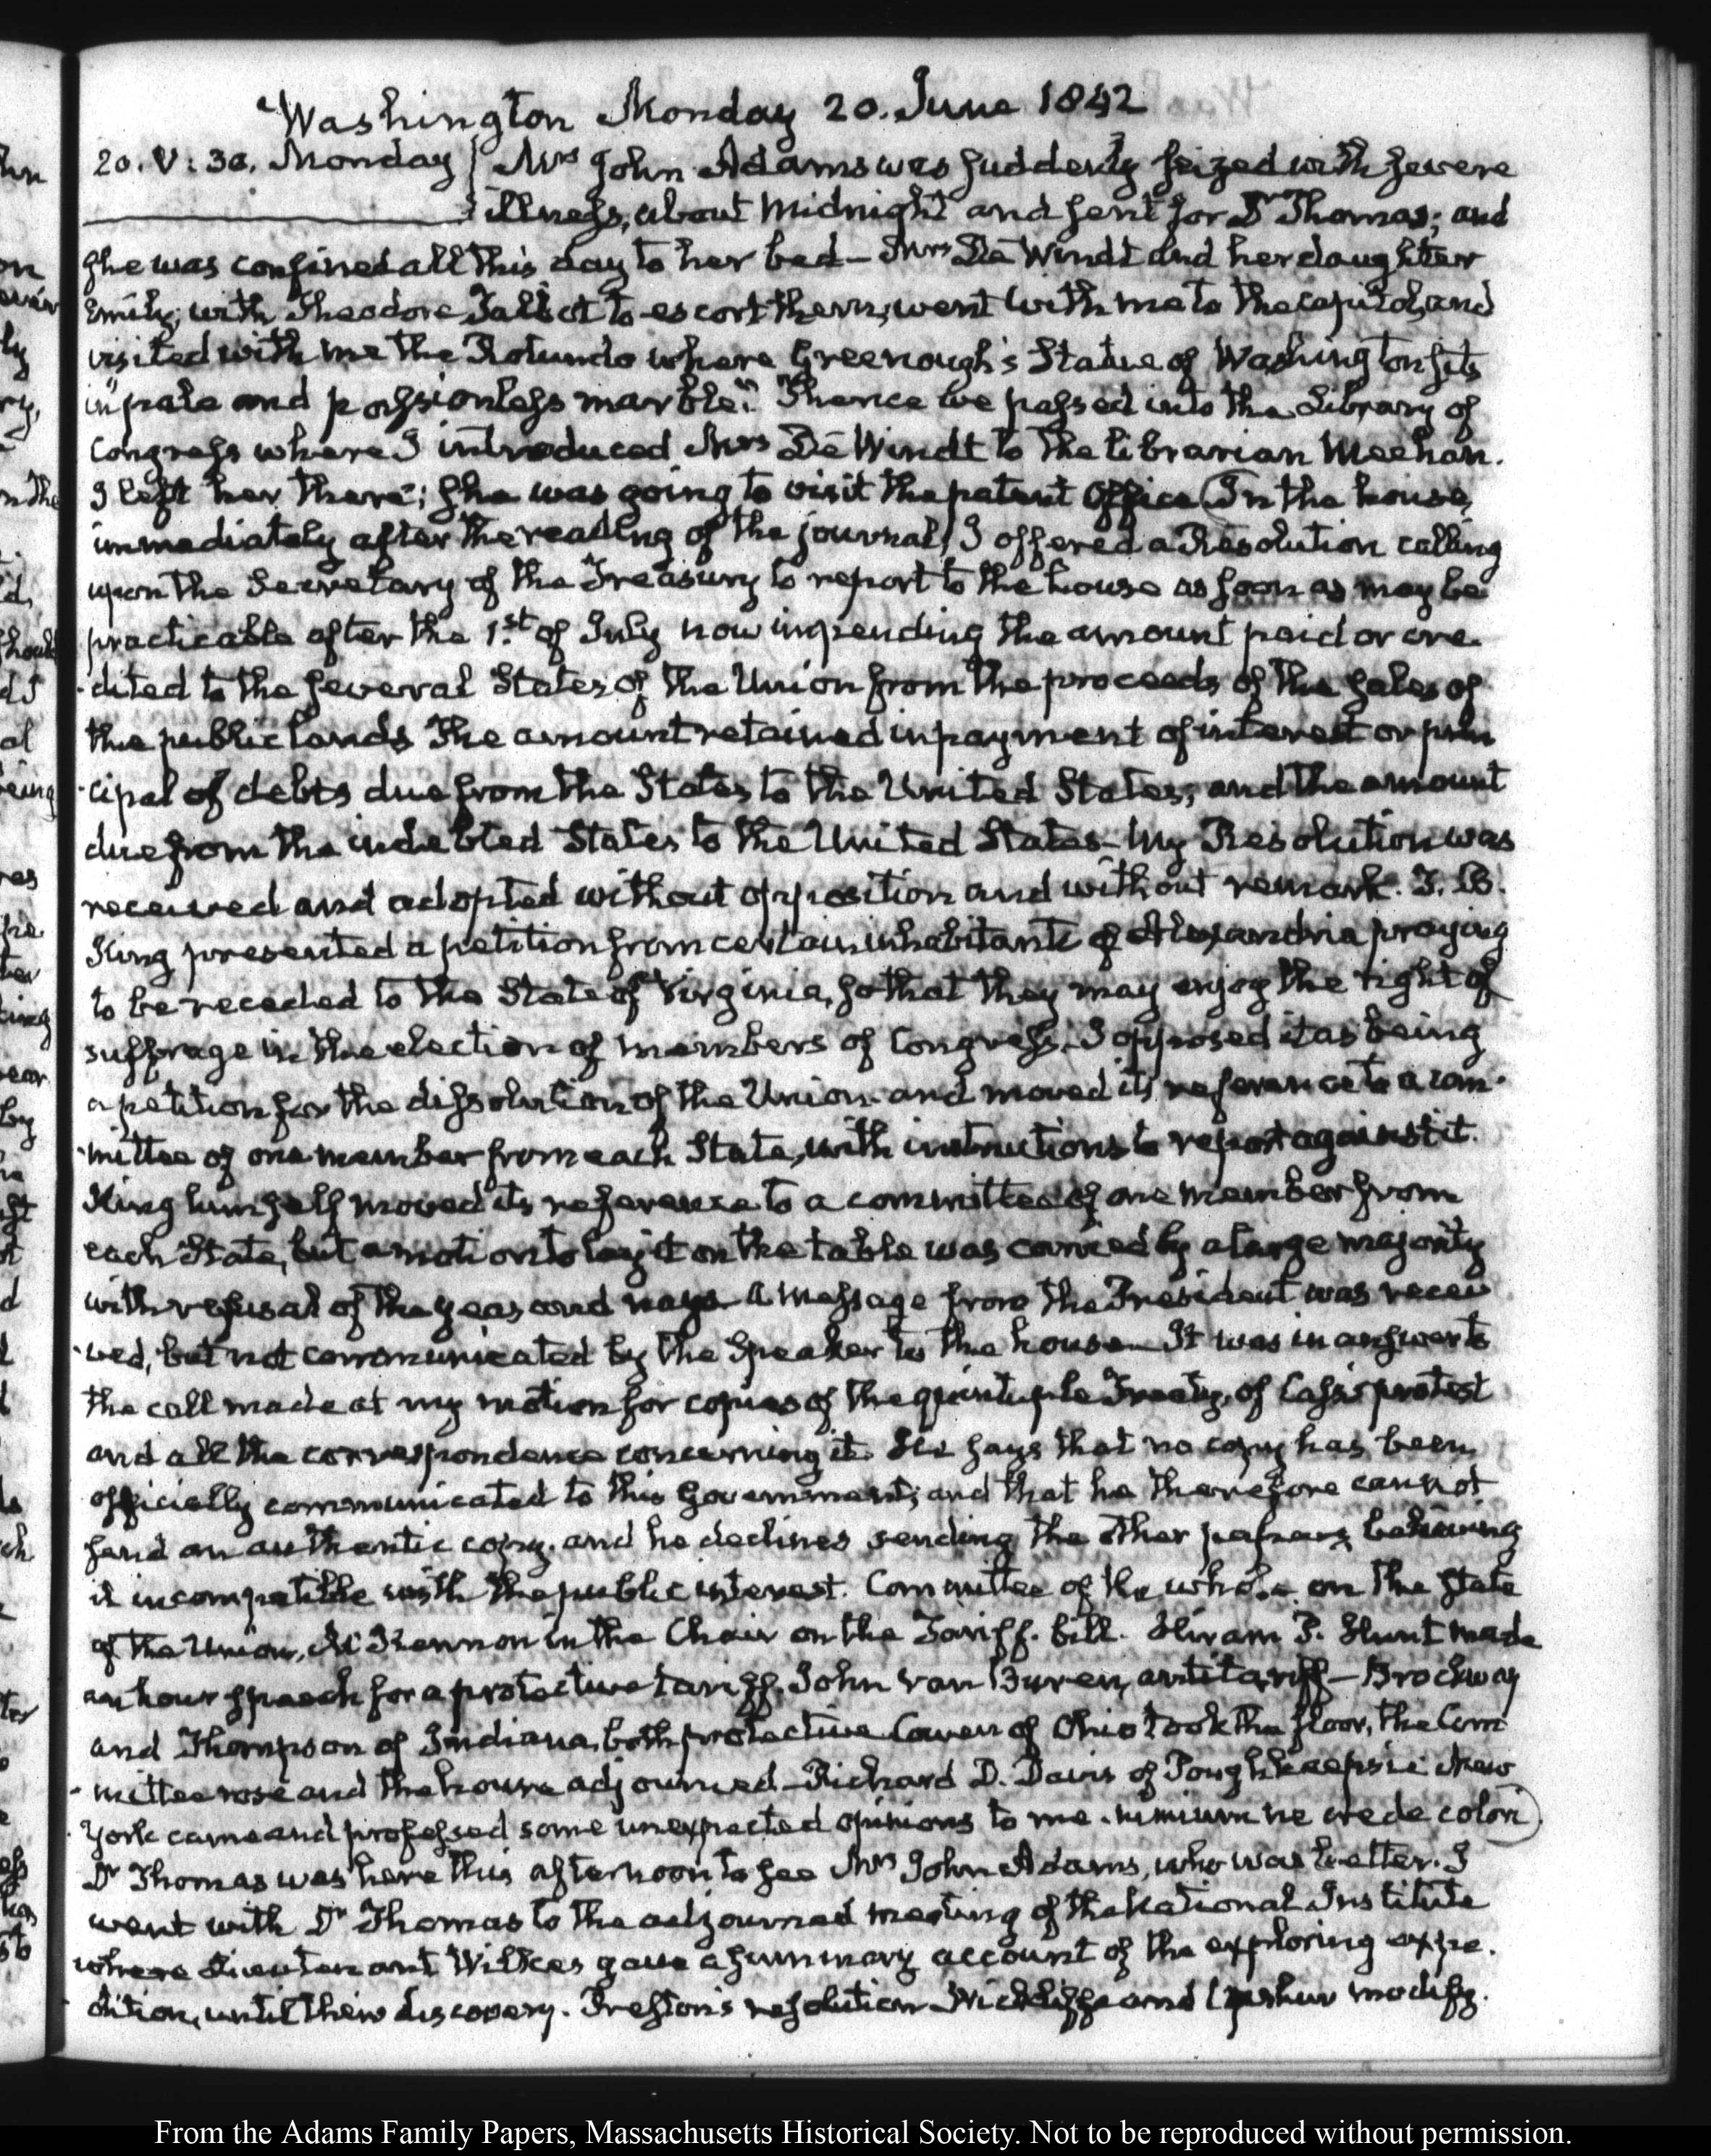 Washington Monday 20. June 1842
20. V: 30. Monday Mrs John Adams was suddenly seized with severe
illness, about midnight and sent for Dr Thomas; and
she was confined all this day to her bed— Mrs De Windt and her daughter
Emily; with Theodore Talbot to escort them, went with me to the Capitol, and
visited with me the Rotundo where Greenough's Statue of Washington sits
in "pale and passionless marble". Thence we passed into the Library of
Congress where I introduced Mrs De Windt to the librarian Meehan.
I left her there; she was going to visit the patent Office (In the house,
immediately after the reading of the journal, I offered a Resolution calling
upon the Secretary of the Treasury to report to the house as soon as may be
practicable after the 1.st of July now impending the amount paid or cre-
-dited to the several States of the Union from the proceeds of the sales of
the public lands The amount retained in payment of interest or prin
-cipal of debts due from the States to the United States; and the amount
due from the indebted States to the United States— My Resolution was
received and adopted without opposition and without remark. T. B.
King presented a petition from certain inhabitants of Alexandria praying
to be receded to the State of Virginia, so that they may enjoy the right of
suffrage in the election of members of Congress. I opposed it as being
a petition for the dissolution of the Union and moved its reference to a com-
-mittee of one member from each State, with instructions to report against it.
King himself moved its reference to a committee of one member from
each State, but a motion to lay it on the table was carried by a large majority
with refusal of the yeas and nays— A Message from the President was recei
-ved, but not communicated by the Speaker to the house— It was in answer to
the call made at my motion for copies of the quintuple Treaty, of Cass's protest
and all the correspondence concerning it. He says that no copy has been
officially communicated to this Government; and that he therefore cannot
send an authentic copy. and he declines sending the other papers believing
it incompatible with the public interest. Committee of the whole on the state
of the Union, McKennon in the Chair on the Tariff. bill. Hiram P. Hunt made
an hour speech for a protective tariff, John Van Buren, antitariff— Brockway
and Thompson of Indiana, both protective Cowen of Ohio took the floor, the Com
-mittee rose and the house adjourned— Richard D. Davis of Poughkeepsie New
York came and professed some unexpected opinions to me. nimium ne crede colori)
Dr Thomas was here this afternoon to see Mrs John Adams, who was better. I
went with Dr Thomas to the adjourned meeting of the National Institute
where Lieutenant Wilkes gave a summary account of the exploring expe-
-dition, until their discovery. Preston's resolution Wickliffe and Upshur modify.